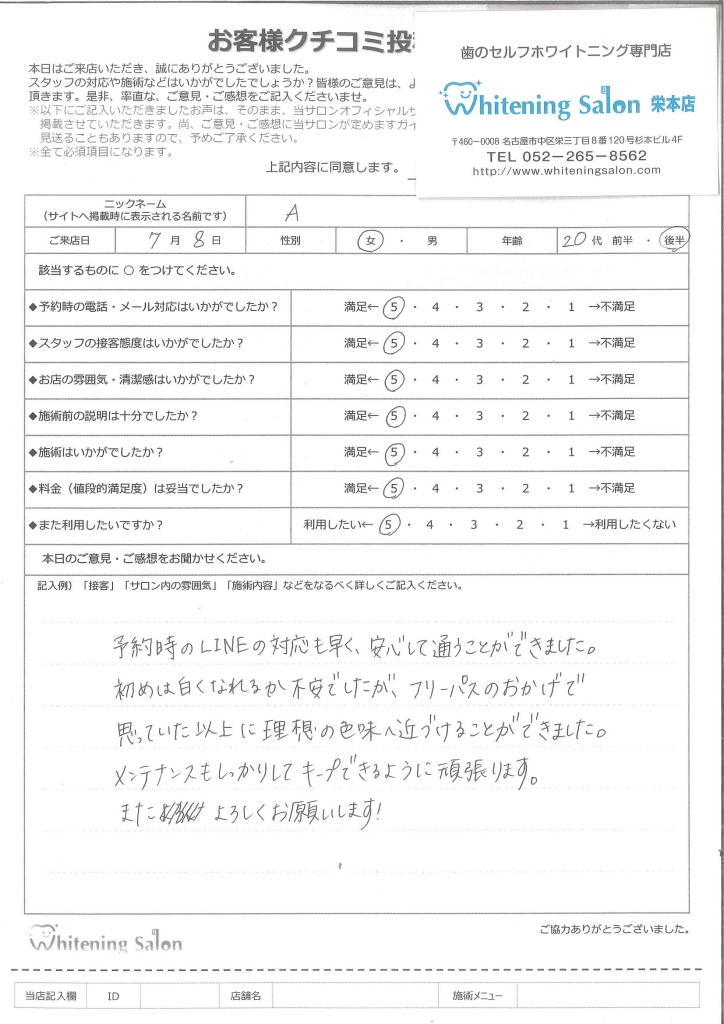 お客様クチコミ投
本日はご来店いただき、誠にありがとうございました。
スタッフの対応や施術などはいかがでしたでしょうか？皆様のご意見は、よ
頂きます。是非、率直な、ご意見・ご感想をご記入くださいませ。
※以下にご記入いただきましたお声は、そのまま、当サロンオフィシャルサ
掲載させていただきます。尚、ご意見・ご感想に当サロンが定めますガイ
見送ることもありますので、予めご了承ください。
※全て必須項目になります。
上記内容に同意します。
歯のセルフホワイトニング専門店
Whitening Salon 栄本店
〒460-0008 名古屋市中区栄三丁目8番120号杉本ビル4F
TEL 052-265-8562
http://www.whiteningsalon.com
ニックネーム
（サイトへ掲載時に表示される名前です） A
ご来店日 7月 8日 性別 女 ・ 男 年齢 20代 前半 ・ 後半
該当するものに ○ をつけてください。
◆予約時の電話・メール対応はいかがでしたか？ 満足← 5 ・ 4 ・ 3 ・ 2 ・ 1 →不満足
◆スタッフの接客態度はいかがでしたか？ 満足← 5 ・ 4 ・ 3 ・ 2 ・ 1 →不満足
◆お店の雰囲気・清潔感はいかがでしたか？ 満足← 5 ・ 4 ・ 3 ・ 2 ・ 1 →不満足
◆施術前の説明は十分でしたか？ 満足← 5 ・ 4 ・ 3 ・ 2 ・ 1 →不満足
◆施術はいかがでしたか？ 満足← 5 ・ 4 ・ 3 ・ 2 ・ 1 →不満足
◆料金（値段的満足度）は妥当でしたか？ 満足← 5 ・ 4 ・ 3 ・ 2 ・ 1 →不満足
◆また利用したいですか？ 利用したい← 5 ・ 4 ・ 3 ・ 2 ・ 1 →利用したくない
本日のご意見・ご感想をお聞かせください。
記入例）「接客」「サロン内の雰囲気」「施術内容」などをなるべく詳しくご記入ください。
予約時のLINEの対応も早く、安心して通うことができました。
初めは白くなれるか不安でしたが、フリーパスのおかげで
思っていた以上に理想の色味へ近づけることができました。
メンテナンスもしっかりしてキープできるように頑張ります。
また よろしくお願いします!
Whitening Salon
ご協力ありがとうございました。
当店記入欄 ID 店舗名 施術メニュー